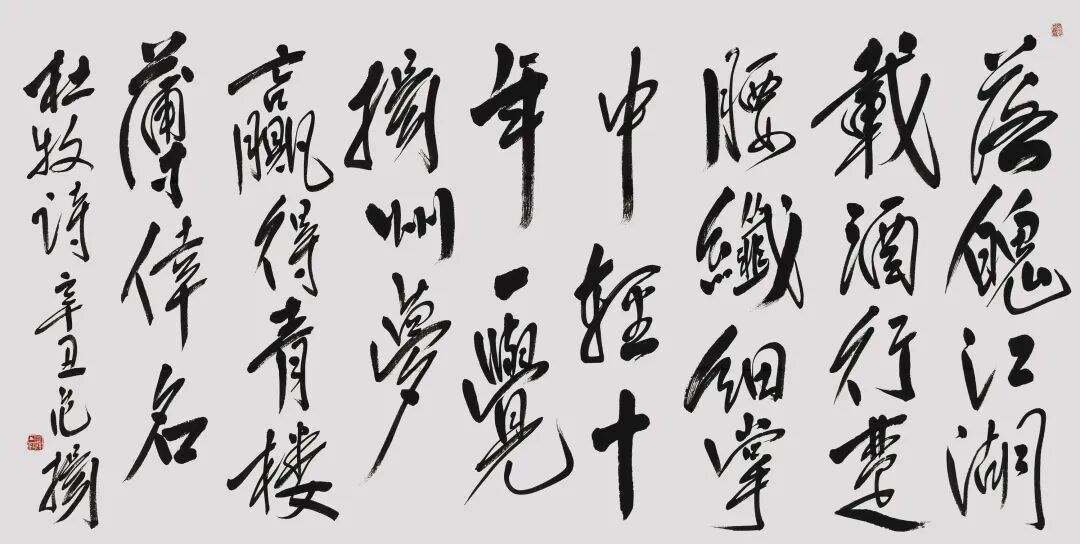 落魄江湖
載酒行楚
腰纖細掌
中輕十
年一覺
揚州夢
贏得青楼
薄倖名
杜牧诗 辛丑 范揚